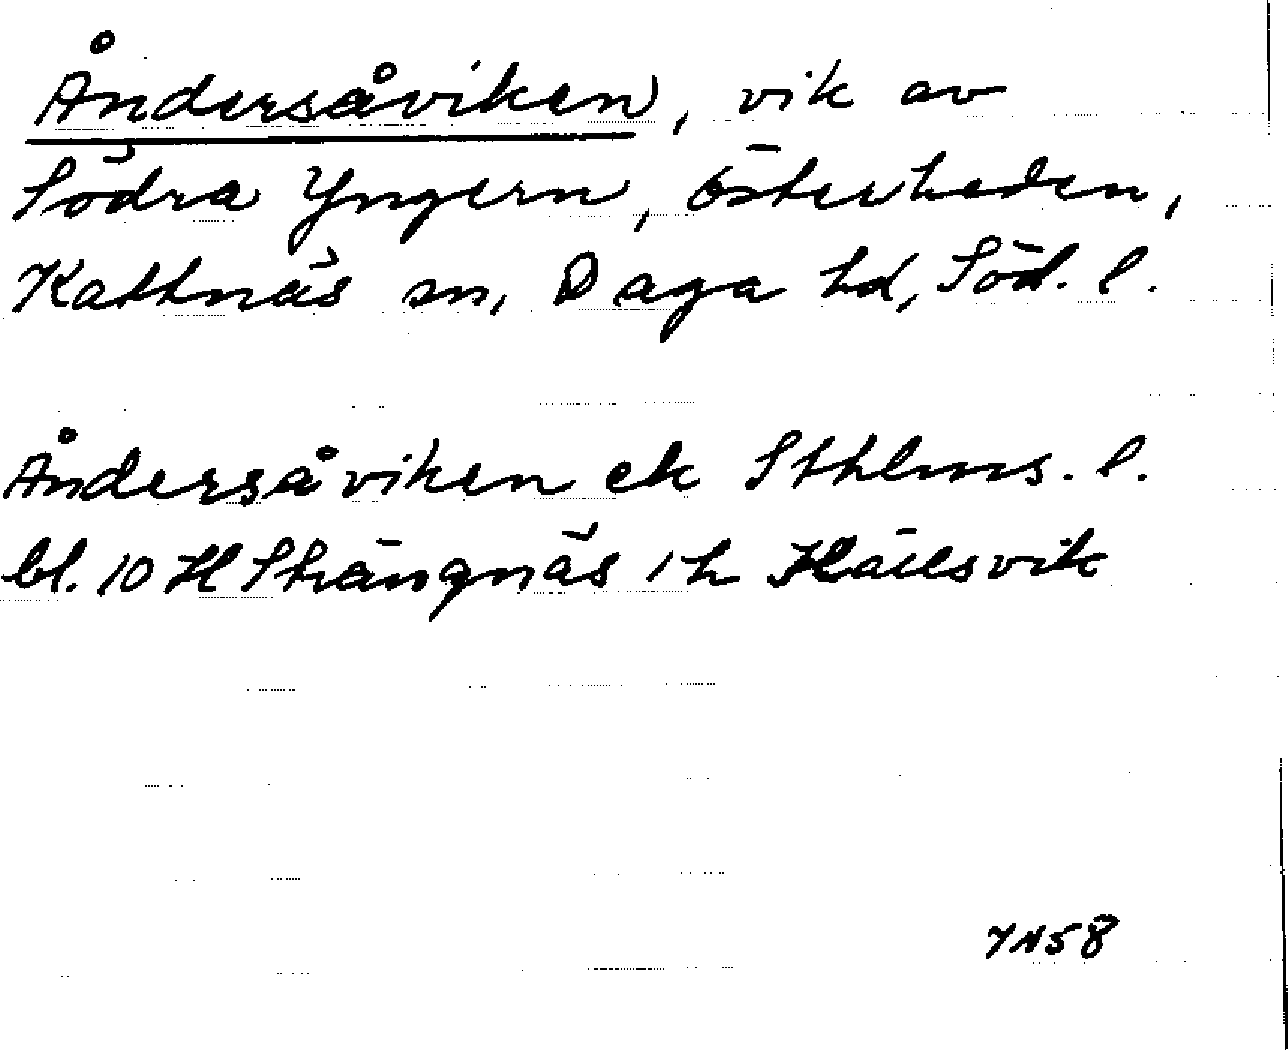 Åndersåviken, vik av
Södra Yngern, Österheden,
Kattnäs sn, Daga hd, Söd. l.
Åndersåviken ek Sthlms. l.
bl. 10 H Strängnäs